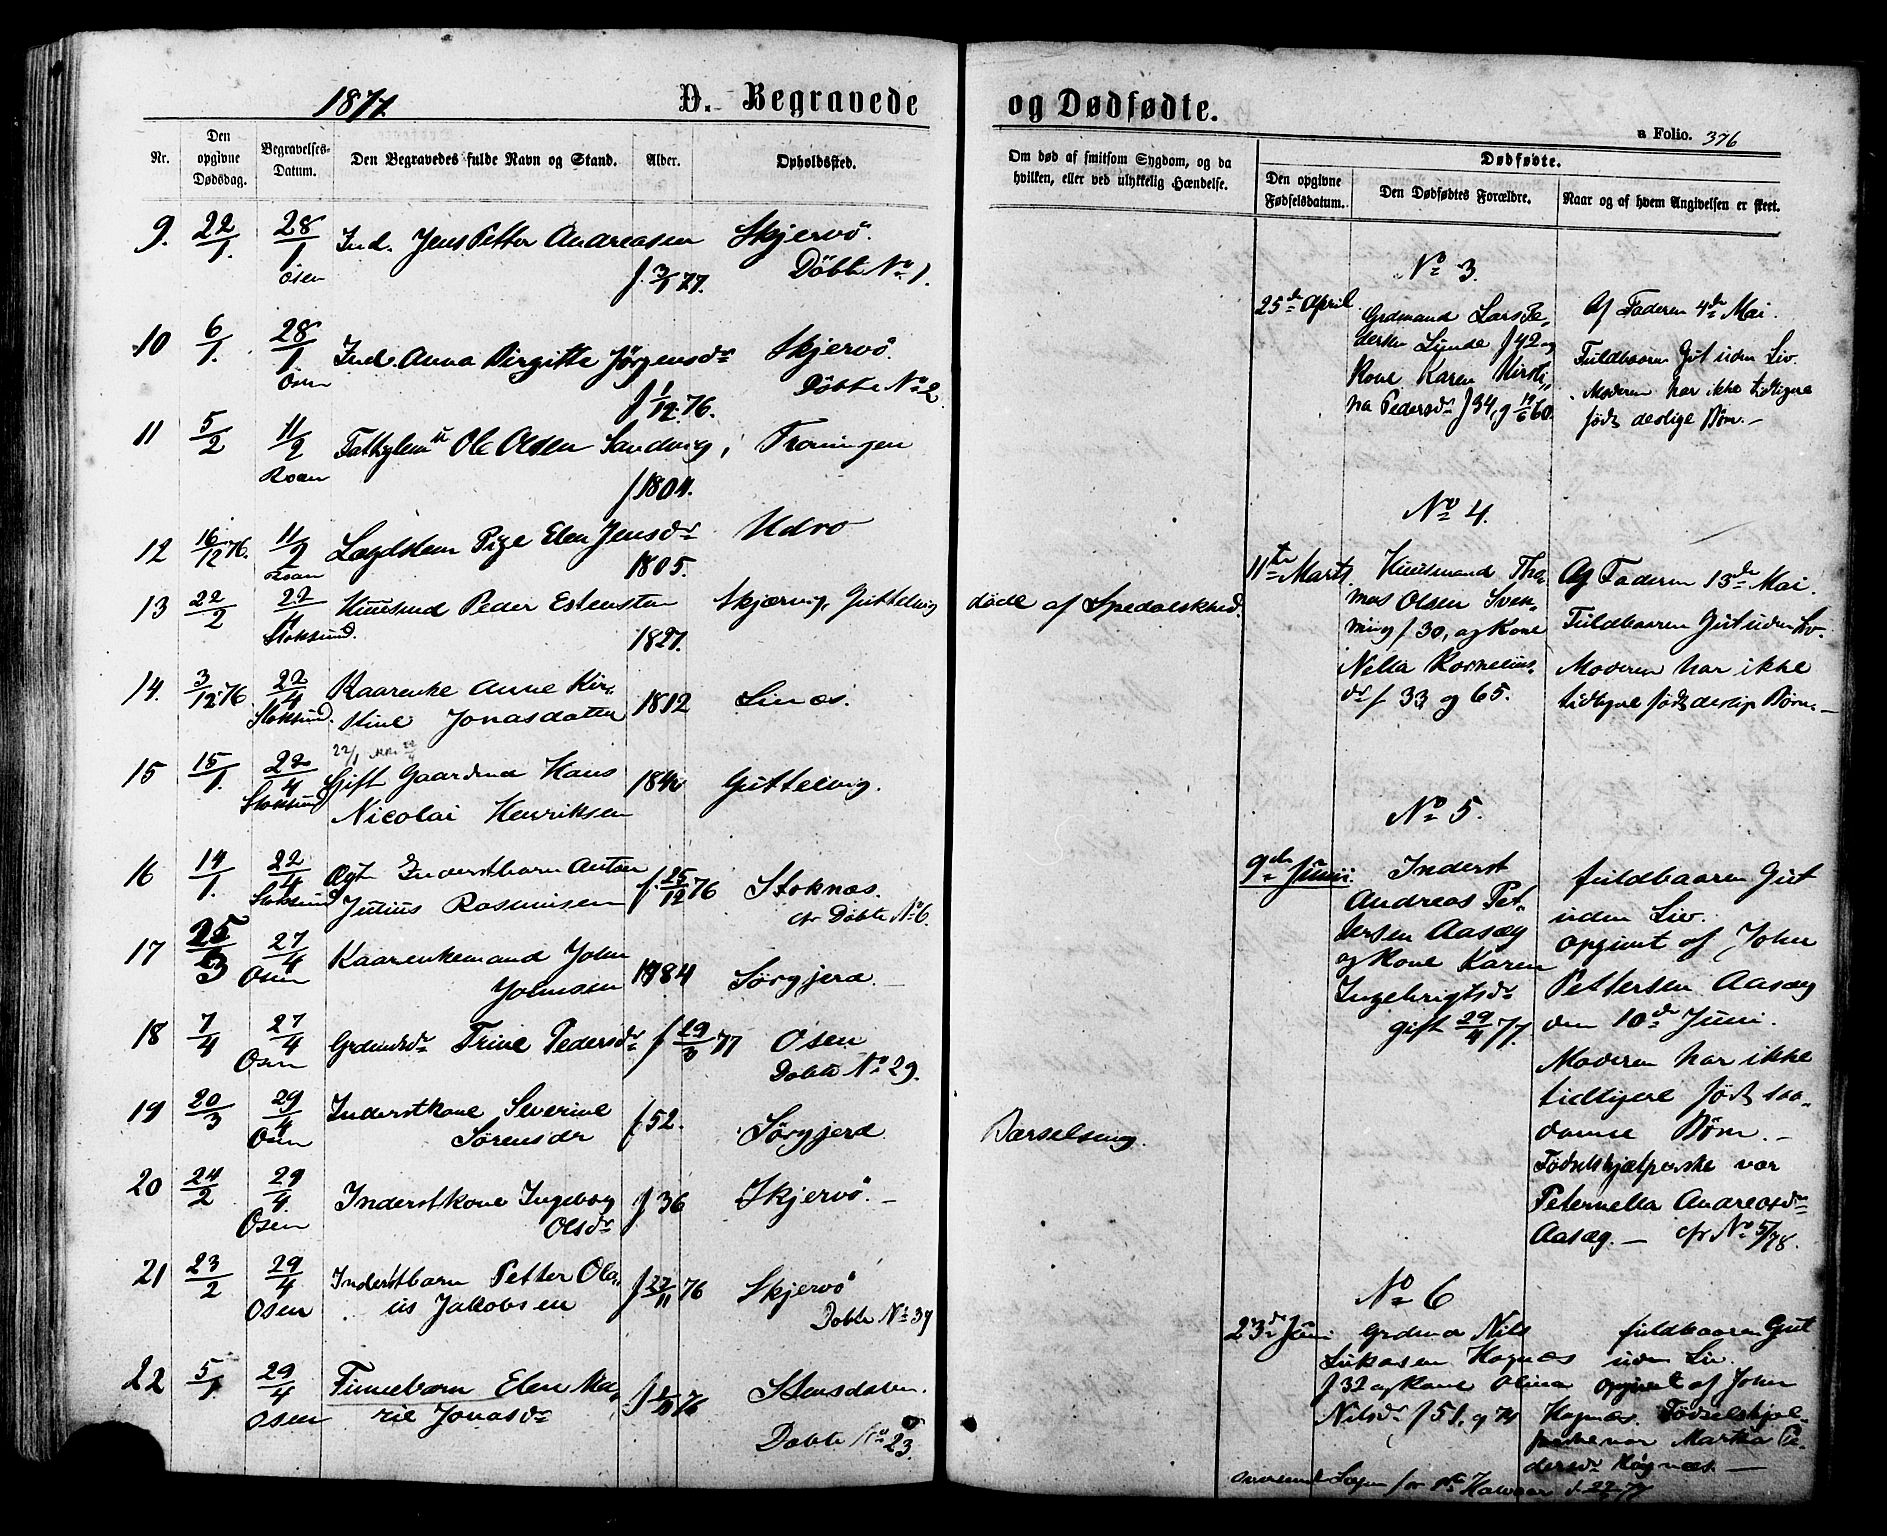 1877.
D. Begravede
og Dødfødte.
a Folio. 376
Nr.
Den opgivne Dødsdag.
Begravelses-Datum.
Den Begravedes fulde Navn og Stand.
Alder.
Opholdssted.
Om død af smitsom Sygdom, og da hvilken, eller ved ulykkelig Hændelse.
Dødfødte.
Den opgivne Fødselsdatum.
Den Dødfødtes Forældre.
Naar og af hvem Angivelsen er skeet.
9. 22/1. 28/1 Ind. Jens Petter Andreasen Skjervö.
Osen f. 3/1 77. Döbte No 1.
10 6/1. 28/1 Ind. Anna Birgitte Jørgensdr Skjervö.
Osen f 1/12.76. Döbte No 2
11 5/2 11/2 Ole Olsen Sandvig,
Roan f 1804.
12 16/12 76. 11/2 Lægdslem Pige Elen Jensdr Udro
Roan 1805.
13 22/2 22/4 Huusmd Peder Estensten Skjærvig, Guttelvig døde af Spedalskhed.
Stoksund. 1827.
14. 3/12.76 22/4 Kaarenke Anne Kir- 1812 Linæs.
Stoksund. stine Jonasdatter
15 15/1. 22/4 Gift Gaardmd Hans Guttelvig.
Stoksund Nicolai Henriksen
16 14/1. 22/4 Ægt Inderstbarn Anton f. 25/12 76 Stoknæs.
Stoksund Julius Rasmusen cfr Döbte No 6.
17 25/3 27/4 Kaarenkemand John 1784 Sörgjerd.
Osen Johnsen
18 7/4 27/4 Grdmdsdr Trine Pedersdr f 29/3 77 Osen
Osen Dobte No 29.
19 20/3 29/4 Inderstkone Severine f. 52. Sörgjerd. Barselseng.
Osen Sørensdr
20 24/2 29/4. Inderstkone Ingeborg f 36 Skjervö.
Osen Olsdr
21 23/2 29/4 Inderstbarn Petter Ola- f 22/11 76 Skjervö
Osen us Jakobsen Dobte No 37
22 5/1 29/4 Finnebarn Elen Ma- Stensdalen.
Osen rie Jonasdr Dobte No 23.
No 3.
25de April
Grdmand Lars Pe-
dersen Lunde f 42 og
Kone Karen Kirsti-
na Pedersdr f 34, g 19/6 60.
Af Faderen 4de Mai.
Fuldbaaren Gut uden Liv.
Moderen har ikke tidligere
født deslige Børn.-
No 4.
11te Marts.
Huusmand Tho-
mas Olsen Sven-
ning f 30, og Kone
Nella Kornelius-
dr f 33 og 65.
Af Faderen 13de Mai.
Fuldbaaren Gut uden Liv.
Moderen har ikke
tidligere født deslige Børn.-
No 5.
9de Juni.
Inderst
Andreas Pet-
tersen Aasæg
og Kone Karen
Ingebrigtsdr
gift 29/4 77.
fuldbaaren Gut
uden Liv.
opgivet af John
Pettersen Aasæg
den 10de Juni.
Moderen har ikke
tidligere født saa-
danne Børn.-
Fødselshjælperske var
Peternella Andreasdr
Aasæg.- cfr No 5/78.
No 6
23de Juni
Grdmd Nils
Lukasen Hognæs
f 32 og Kone Olina
Nilsdr f 51, g 74
fuldbaaren Gut
uden Liv.
opgivet af John
Hognæs. Fødselshjæl-
perske var Martha Pe-
dersdr Hognæs.-